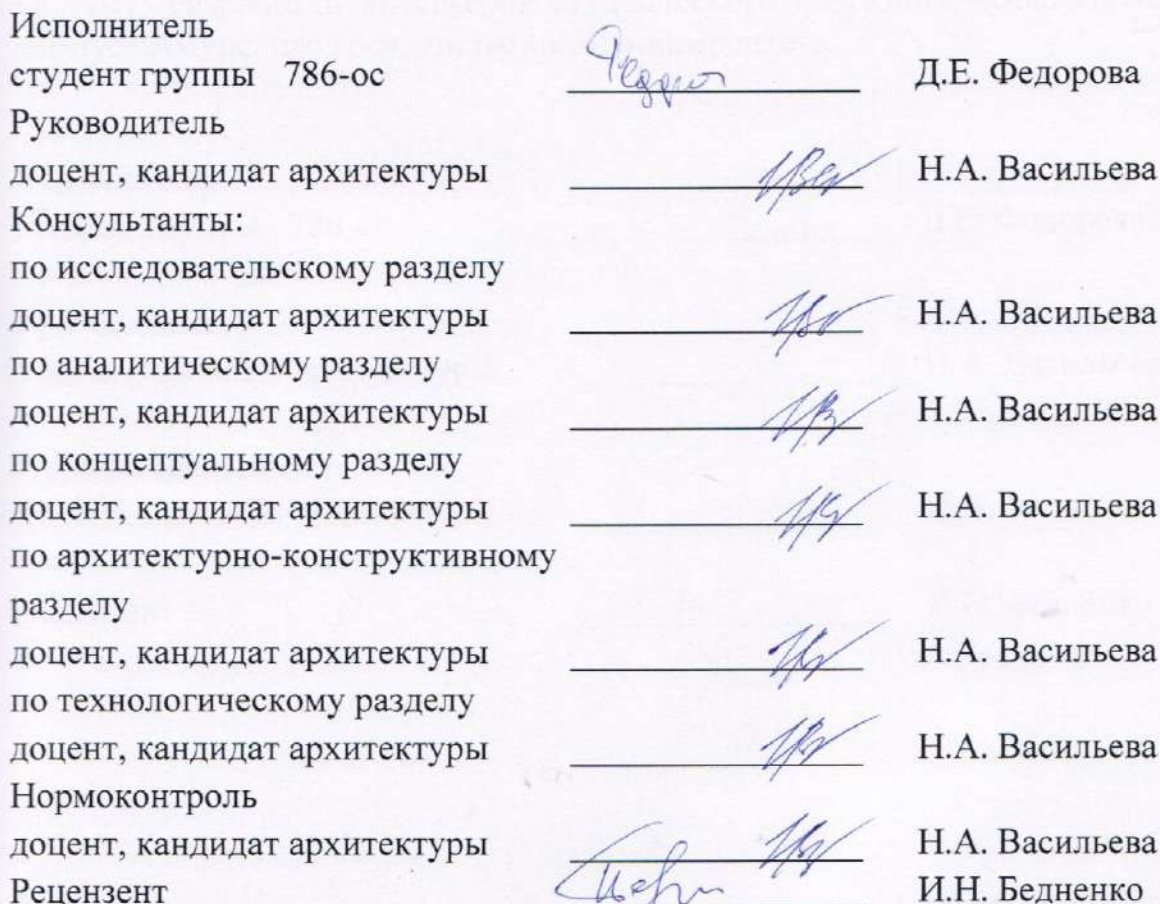 Исполнитель
студент группы 786-ос Д.Е. Федорова
Руководитель
доцент, кандидат архитектуры Н.А. Васильева
Консультанты:
по исследовательскому разделу
доцент, кандидат архитектуры Н.А. Васильева
по аналитическому разделу
доцент, кандидат архитектуры Н.А. Васильева
по концептуальному разделу
доцент, кандидат архитектуры Н.А. Васильева
по архитектурно-конструктивному
разделу
доцент, кандидат архитектуры Н.А. Васильева
по технологическому разделу
доцент, кандидат архитектуры Н.А. Васильева
Нормоконтроль
доцент, кандидат архитектуры Н.А. Васильева
Рецензент И.Н. Бедненко